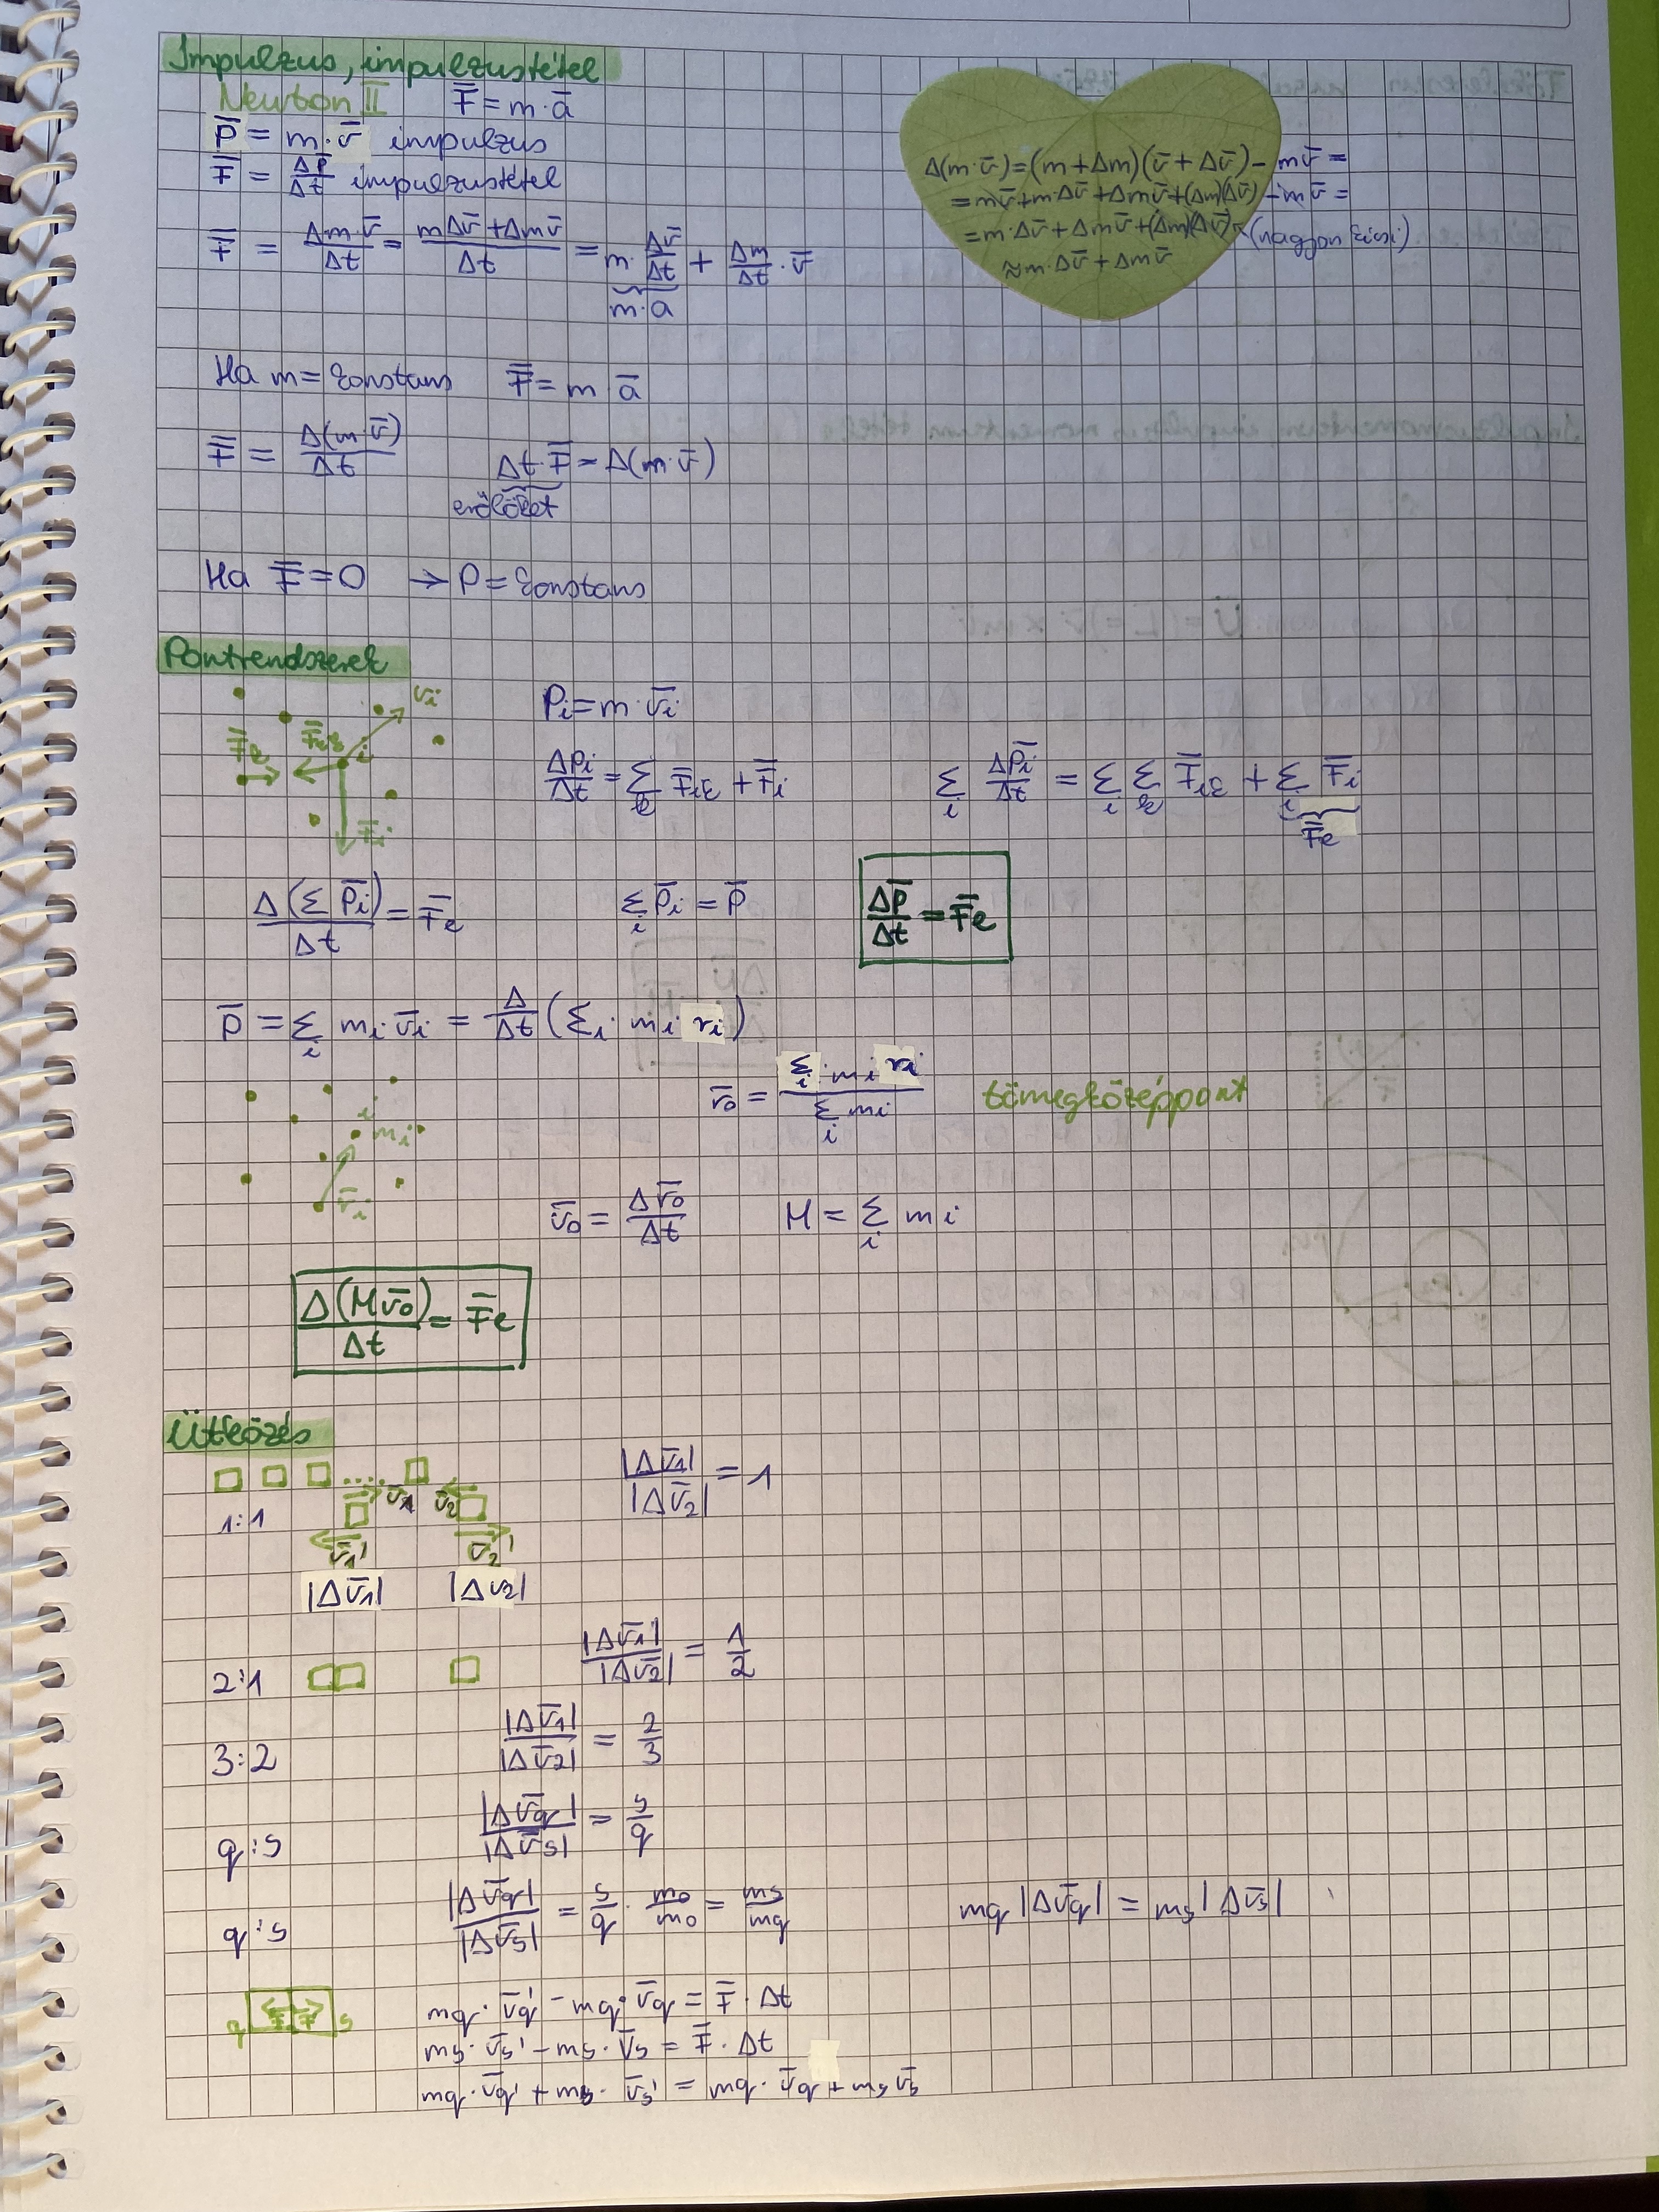 Impulzus, impulzustétel
Newton II F̄ = m·ā
p̄ = m·v̄ impulzus
F̄ = Δp̄/Δt impulzustétel
F̄ = Δm·v̄/Δt = mΔv̄+Δmv̄/Δt = m·Δv̄/Δt + Δm/Δt·v̄
m·a
Δ(m·v̄)=(m+Δm)(v̄+Δv̄)-mv̄=
=mv̄+m·Δv̄+Δmv̄+(Δm)(Δv̄)-mv̄=
=m·Δv̄+Δmv̄+(Δm)(Δv̄)↖(nagyon kicsi)
≈m·Δv̄+Δmv̄
Ha m=konstans F̄=m ā
F̄ = Δ(m·v̄)/Δt Δt·F̄=Δ(m·v̄)
erőlöket
Ha F̄=0 → p=konstans
Pontrendszerek
v̄i
F̄k F̄ik i
F̄i
Pi=m·v̄i
Δpi/Δt = Σk F̄ik + F̄i Σi Δp̄i/Δt = Σi Σk F̄ik + Σi F̄i
F̄e
Δ(Σ p̄i)/Δt = F̄e Σi p̄i = p̄ Δp̄/Δt = F̄e
p̄ = Σi mi v̄i = Δ/Δt (Σi·mi ri)
r̄0 = Σi·mi ri/Σi mi tömegközéppont
i
mi
r̄i
v̄0 = Δr̄0/Δt M = Σi mi
Δ(Mv̄0)/Δt = F̄e
Ütközés
v̄1 v̄2
1:1 |Δv̄1|/|Δv̄2| = 1
v̄1' v̄2'
|Δv̄1| |Δv2|
2:1 |Δv̄1|/|Δv̄2| = 1/2
3:2 |Δv̄1|/|Δv̄2| = 2/3
q:s |Δv̄q|/|Δv̄s| = s/q
q:s |Δv̄q|/|Δv̄s| = s/q · m0/m0 = ms/mq mq|Δv̄q| = ms|Δv̄s|
q F̄ F̄ s
mq·v̄q' - mq·v̄q = F̄·Δt
ms·v̄s' - ms·v̄s = F̄·Δt
mq·v̄q' + ms·v̄s' = mq·v̄q + ms v̄s